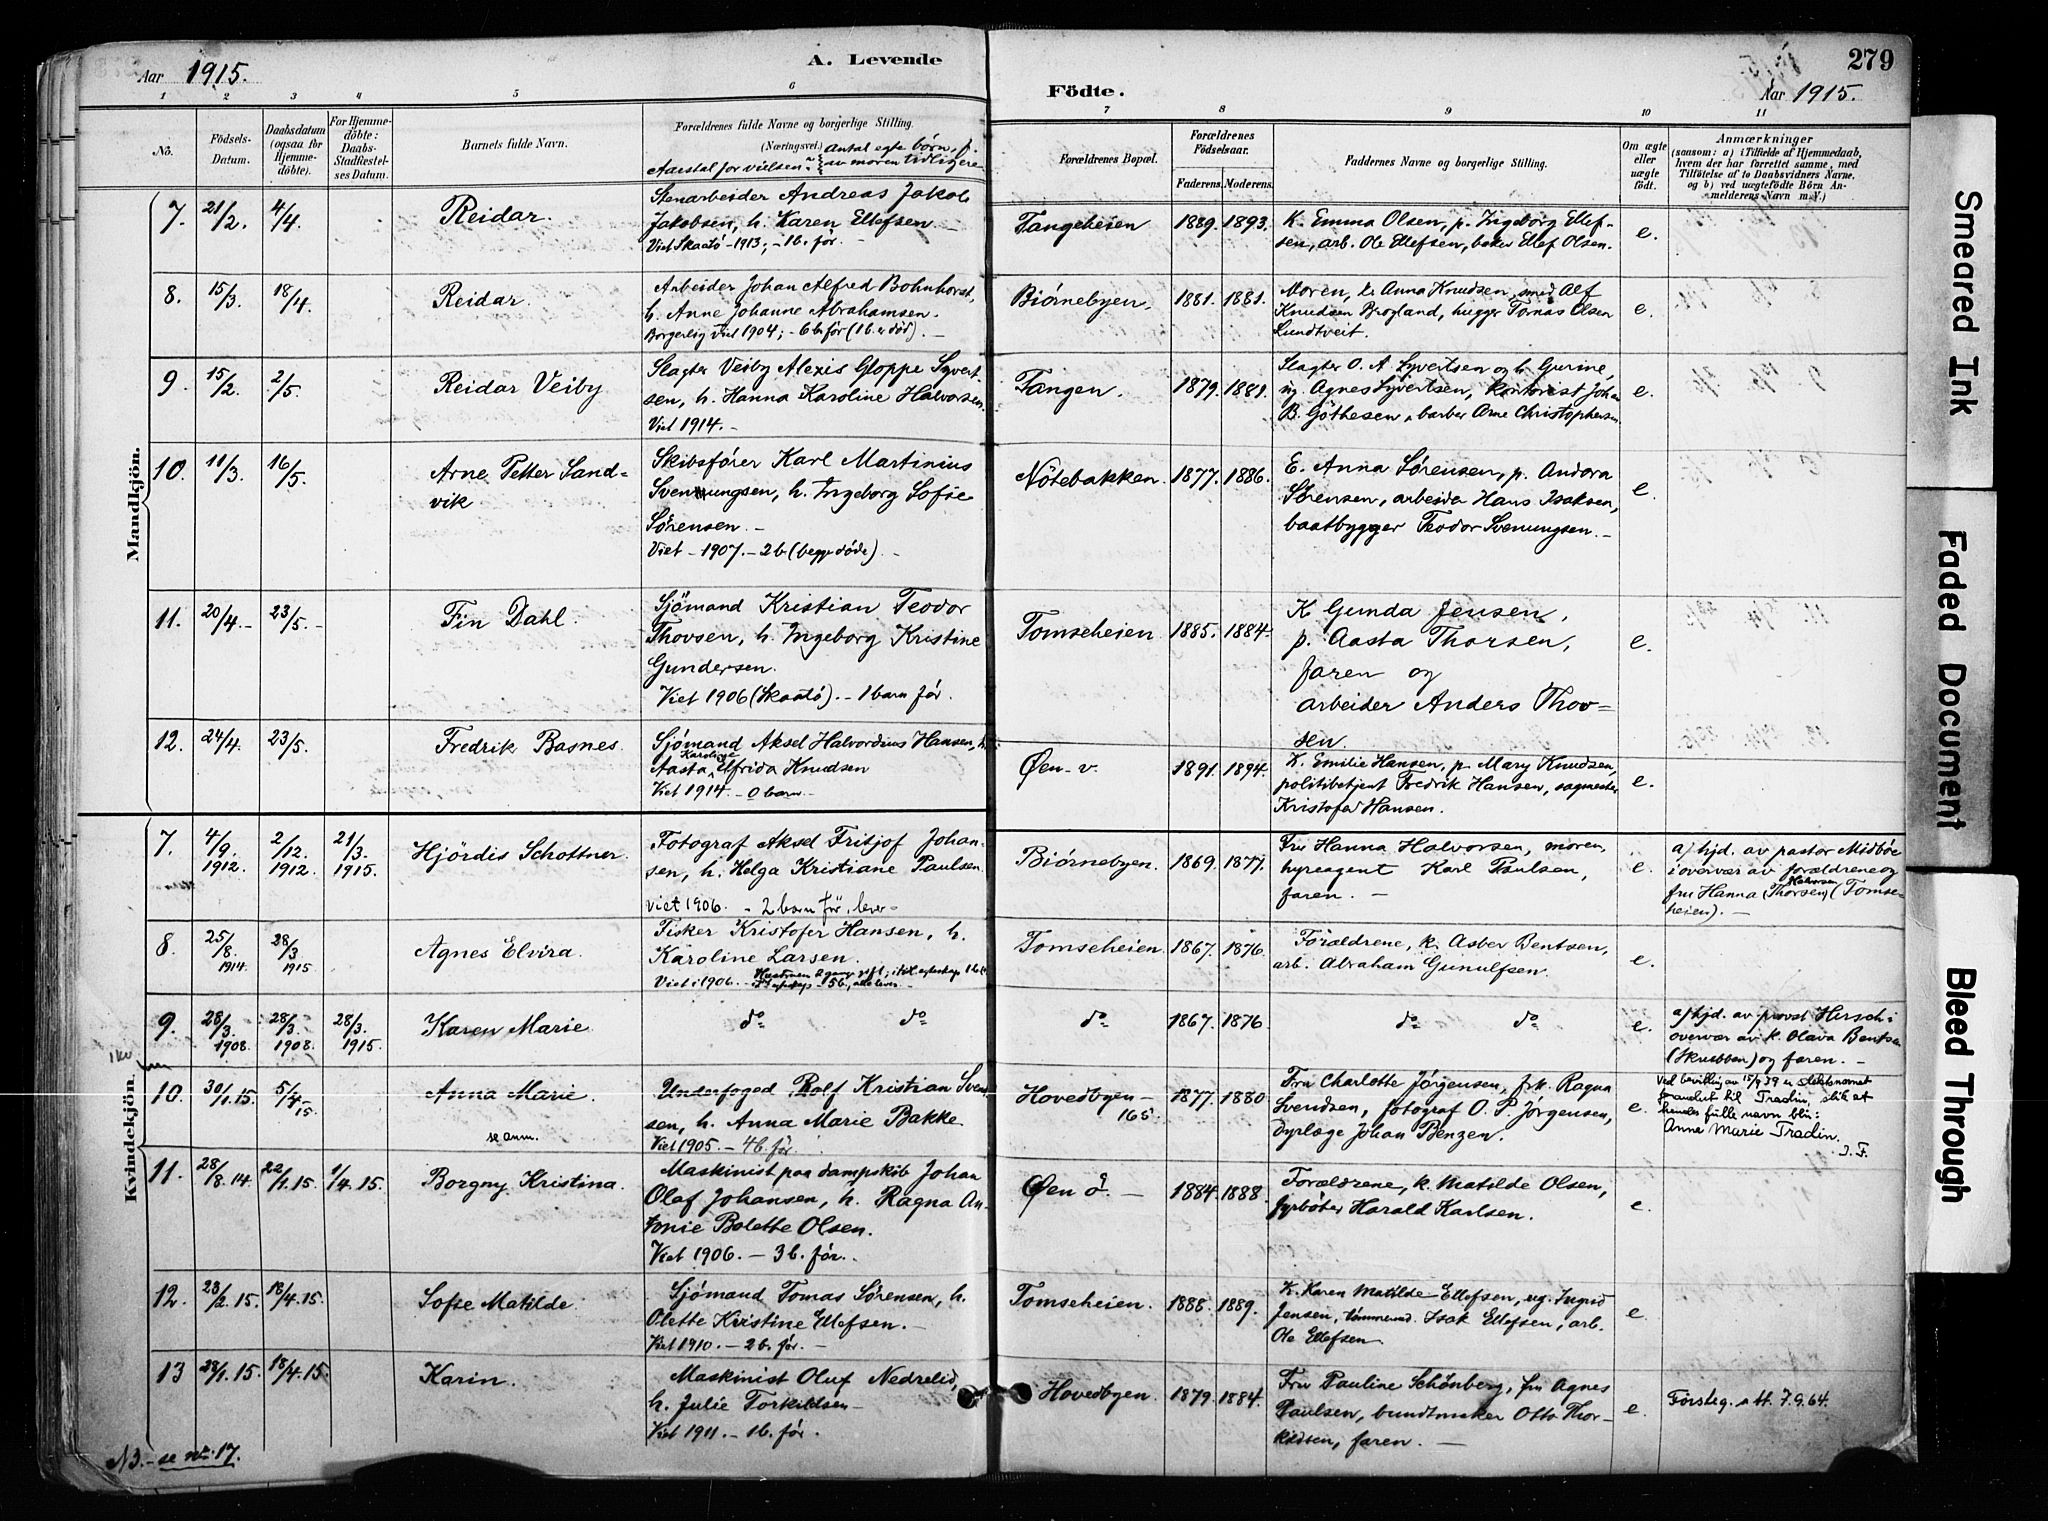 Aar 1915.
A. Levende
Födte.
279
Aar 1915.
1 2 3 4 5 6 7 8 9 10 11
No.
Födsels-
Datum.
Daabsdatum
(ogsaa for
Hjemme-
döbte).
For Hjemme-
döbte:
Daabs-
Stadfæstel-
ses Datum.
Barnets fulde Navn.
Forældrenes fulde Navne og borgerlige Stilling.
(Næringsvei.) Antal egte børn, f.
Aarstal for vielsen av moren tidligere
Forældrenes Bopæl.
Forældrenes
Födselsaar.
Faderens. Moderens.
Faddernes Navne og borgerlige Stilling.
Om ægte
eller
uægte
födt.
Anmærkninger
(saasom: a) i Tilfælde af Hjemmedaab,
hvem der har forrettet samme, med
Tilföielse af to Daabsvidners Navne,
og b) ved uægtefödte Börn An-
melderens Navn m. V.)
Mandkjön.
7. 21/2. 4/4. Reidar.
Stenarbeider Andreas Jakob
Jakobsen, h. Karen Ellefsen.
Viet Skaatö - 1913; - 1 b. før. -
Tangeheien 1889. 1893.
K. Emma Olsen, p. Ingeborg Ellef-
sen, arb. Ole Ellefsen, baker Ellef Olsen.
e.
8. 15/3. 18/4. Reidar.
Arbeider Johan Alfred Bohnhorst,
h. Anne Johanne Abrahamsen.
Borgerlig viet 1904; - 6 b. før (1 b. er død). -
Biørnebyen, 1881. 1881.
Moren, k. Anna Knudsen, Alf
Knudsen Brogland, hugger Tomas Olsen
Lundtveit.
e.
9. 15/2. 2/5. Reidar Veiby
Slagter Veiby Alexis Gloppe Syvert-
sen, h. Hanna Karoline Halvorsen.
Viet 1914. -
Tangen. 1879. 1881.
Slagter O. A Syvertsen og h. Gurine,
ug. Agnes Syvertsen, kontorist Johan
B. Göthesen, barber Arne Christophersen
e.
10. 11/3. 16/5. Arne Petter Sand-
vik
Skibsfører Karl Martinius
Svenungsen, h. Ingeborg Sofie
Sørensen. -
Viet - 1907. - 2 b (begge døde). -
Nötebakken. 1877. 1886.
E. Anna Sørensen, p. Andora
Sørensen, arbeider Hans Isaksen,
baatbygger Teodor Svenungsen. -
e
11. 20/4. - 23/5. - Fin Dahl.
Sjömand Kristian Teodor
Thovsen, h. Ingeborg Kristine
Gundersen.
Viet 1906 (Skaatö). - 1 barn før.
Tomseheien. 1885. 1884.
K Gunda Jensen,
p. Aasta Thorsen,
faren og
arbeider Anders Thov=
sen.
e.
12. 24/4. 23/5. Fredrik Basnes.
Sjömand Aksel Halvordius Hansen, h.
Karoline
Aasta Elfrida Knudsen
Viet 1914. - 0 barn. -
Øen - v. 1891. 1894.
K. Emilie Hansen, p. Mary Knudsen,
politibetjent Fredrik Hansen, sagmester
Kristofer Hansen.
e.
Kvindekjön.
7. 4/9. 1912. 2/12. 1912. 21/3. 1915. Hjördis Schottner.
Fotograf Aksel Fritjof Johan-
sen, h. Helga Kristiane Paulsen.
viet 1906. - 2 barn før, lever -
Biørnebyen. 1869. 1877.
Fru Hanna Halvorsen, moren,
hyreagent Karl Paulsen,
faren. -
e.
a) hjd. av pastor Midböe
i overvær av forældrene og
Halvorsen
fru Hanna (Thorsen) (Tomse-
heien). -
8. 25/8. 1914. 28/3 1915. Agnes Elvira.
Fisker Kristofer Hansen, h.
Karoline Larsen.
Viet i 1906. Hustruen 2 gang gift;
Tomseheien. 1867. 1876.
Forældrene, k. Asber Bentsen,
arb. Abraham Gunulfsen.
e.
9. 28/3. 1908. 28/3. 1908. 28/3. 1915. Karen Marie.
do do
do 1867. 1876.
do do
e.
a) hjd. av provst Hirsch i
overvær av k. Olava Bentsen
(Skrubben) og faren. -
10. 30/1. 15. 5/4 15. Anna Marie.
se anm.
Underfoged Rolf Kristian Svend-
sen, h. Anna Marie Bakke
Viet 1905 - 4 b. før.
Hovedbyen - 165 1877. 1880
Fru Charlotte Jørgensen, frk. Ragna
Svendsen, fotograf O. P. Jørgensen,
Dyrlæge Johan Benzen.
e.
Ved bevilling av 15/9 39 er slektsnavnet
forandret til Tradin, slik at
hendes fulle navn blir:
Anna Marie Tradin.
J. F.
11. 28/8. 14. 22/1. 15. 1/4. 15. Borgny Kristina.
Maskinist paa dampskib Johan
Olaf Johansen, h. Ragna An-
tonie Bolette Olsen.
Viet 1906. - 3 b. før.
Øen ö. - 1884. 1888.
Forældrene, k. Matilde Olsen,
fyrbøter Harald Karlsen.
e.
12. 23/2. 15. 18/4. 15. Sofie Matilde.
Sjömand Tomas Sørensen, h.
Olette Kristine Ellefsen. -
Viet 1910. - 2 b. før. -
Tomseheien. 1888. 1889.
K. Karen Matilde Ellefsen, ug. Ingrid
Jensen, tømmermd. Isak Ellefsen, arb.
Ole Ellefsen
e.
13 28/1. 15. 18/4. 15. Karin.
Maskinist Oluf Nedrelid,
h. Julie Torkildsen -
Viet 1911. - 1 b. før.
Hovedbyen. 1879. 1884.
Fru Pauline Schönberg, fru Agnes
Paulsen, bundtmaker Otto Thor-
kildsen, faren. -
e.
Førsteg. att. 7.9.64.
NB. - se nr. 17.
Smeared Ink
Faded Document
Bleed Through